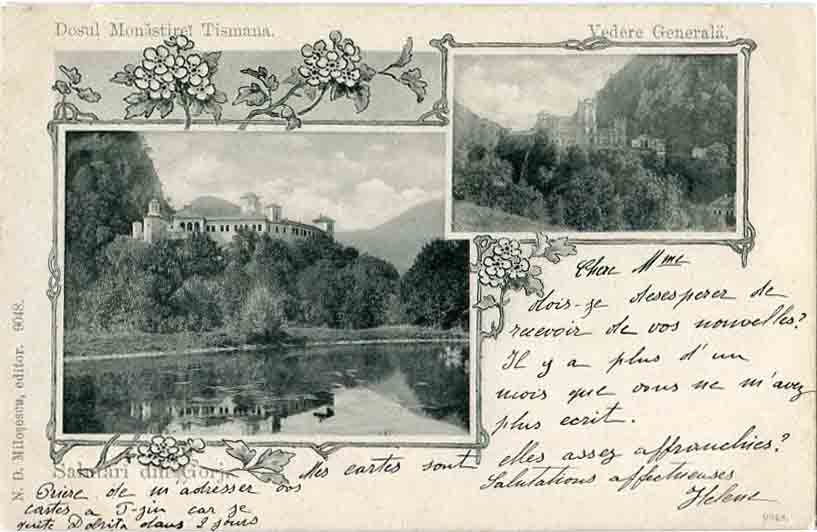 Dosul Monăstirei Tismana.
Vedere Generală.
N. D. Miloşescu, editor. 9048.
Salutări din Gorj.
Chere Mme
dois-je desesperer de
recevoir de vos nouvelles?
Il y a plus d'un
mois que vous ne m'avez
plus ecrit.
Mes cartes sont
elles assez affranchies?
Salutations affectueuses
Helene
Priere de m'adresser vos
cartes a T-Jiu car je
quite Dobrita dans 2 jours